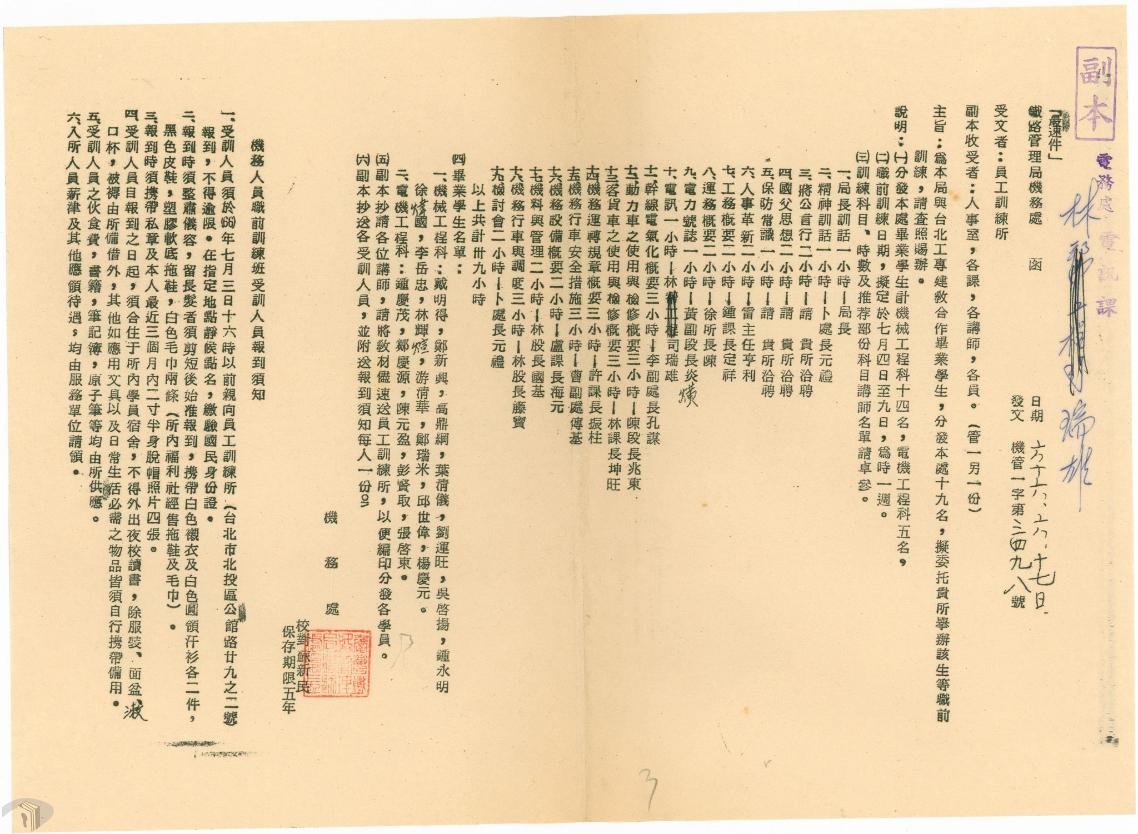 副本
電務處電訊課
「最速件」
鐵路管理局機務處　函
日期　六十六、六、十七日
發文　機管一字第三四九八號
受文者：員工訓練所
副本收受者：人事室，各課，各講師，各員。（管一另一份）
主旨：為本局與台北工專建教合作畢業學生，分發本處十九名，擬委托貴所舉辦該生等職前
訓練，請查照賜辦。
說明：㈠分發本處畢業學生計機械工程科十四名，電機工程科五名，
㈡職前訓練日期，擬定於七月四日至九日，為時一週。
㈢訓練科目、時數及推荐部份科目講師名單請卓參。
一、局長訓話一小時－局長
二、精神訓話一小時－卜處長元禮
三、蔣公言行二小時－請　貴所洽聘
四、國父思想二小時－請　貴所洽聘
五、保防常識一小時－請　貴所洽聘
六、人事革新二小時－雷主任亨利
七、工務概要二小時－鍾課長定祥
八、運務概要二小時－徐所長陳
九、電力號誌一小時－黃副段長炎煐
十、電訊一小時－林司瑞雄
十一、幹線電氣化概要三小時－李副處長孔謀
十二、動力車之使用與檢修概要三小時－陳段長兆東
十三、客貨車之使用與檢修概要三小時－林課長坤旺
十四、機務運轉規章概要三小時－許課長振柱
十五、機務行車安全措施三小時－曹副處傳基
十六、機務設備概要二小時－盧課長海元
十七、機料與管理二小時－林股長國基
十八、機務行車與調度三小時－林股長藤寶
十九、檢討會二小時－卜處長元禮
以上共計卅九小時
㈣畢業學生名單：
一、機械工程科：戴明得，鄭新興，高鼎綱，葉清儀，劉運旺，吳啓揚，鍾永明
徐國，李岳忠，林輝煌，游清華，鄭瑞米，邱世偉，楊慶元。
二、電機工程科：鍾慶茂，鄭慶源，陳元盈，彭賢取，張啓東。
㈤副本抄請各位講師，請將敎材儘速送員工訓練所，以便編印分發各學員。
㈥副本抄送各受訓人員，並附送報到須知每人一份。
機務處
校對蘇新民
保存期限五年
機務人員職前訓練班受訓人員報到須知
一、受訓人員須於66年七月三日十六時以前親向員工訓練所（台北市北投區公館路廿九之二號）
報到，不得逾限。在指定地點靜候點名，繳驗國民身份證。
二、報到時須整肅儀容，留長髮者須剪短後始准報到，携帶白色襯衣及白色圓領汗衫各二件，
黑色皮鞋，塑膠軟底拖鞋，白色毛巾兩條（所內福利社經售拖鞋及毛巾）。
三、報到時須携帶私章及本人最近三個月內二寸半身脫帽照片四張。
四、受訓人員自報到之日起，須合住于所內學員宿舍，不得外出夜校讀書，除服裝、面盆、漱
口杯，被褥由所備借外，其他如應用文具以及日常生活必需之物品皆須自行携帶備用。
五、受訓人員之伙食費，書籍，筆記簿，原子筆等均由所供應。
六、入所人員薪津及其他應領待遇，均由服務單位請領。
3